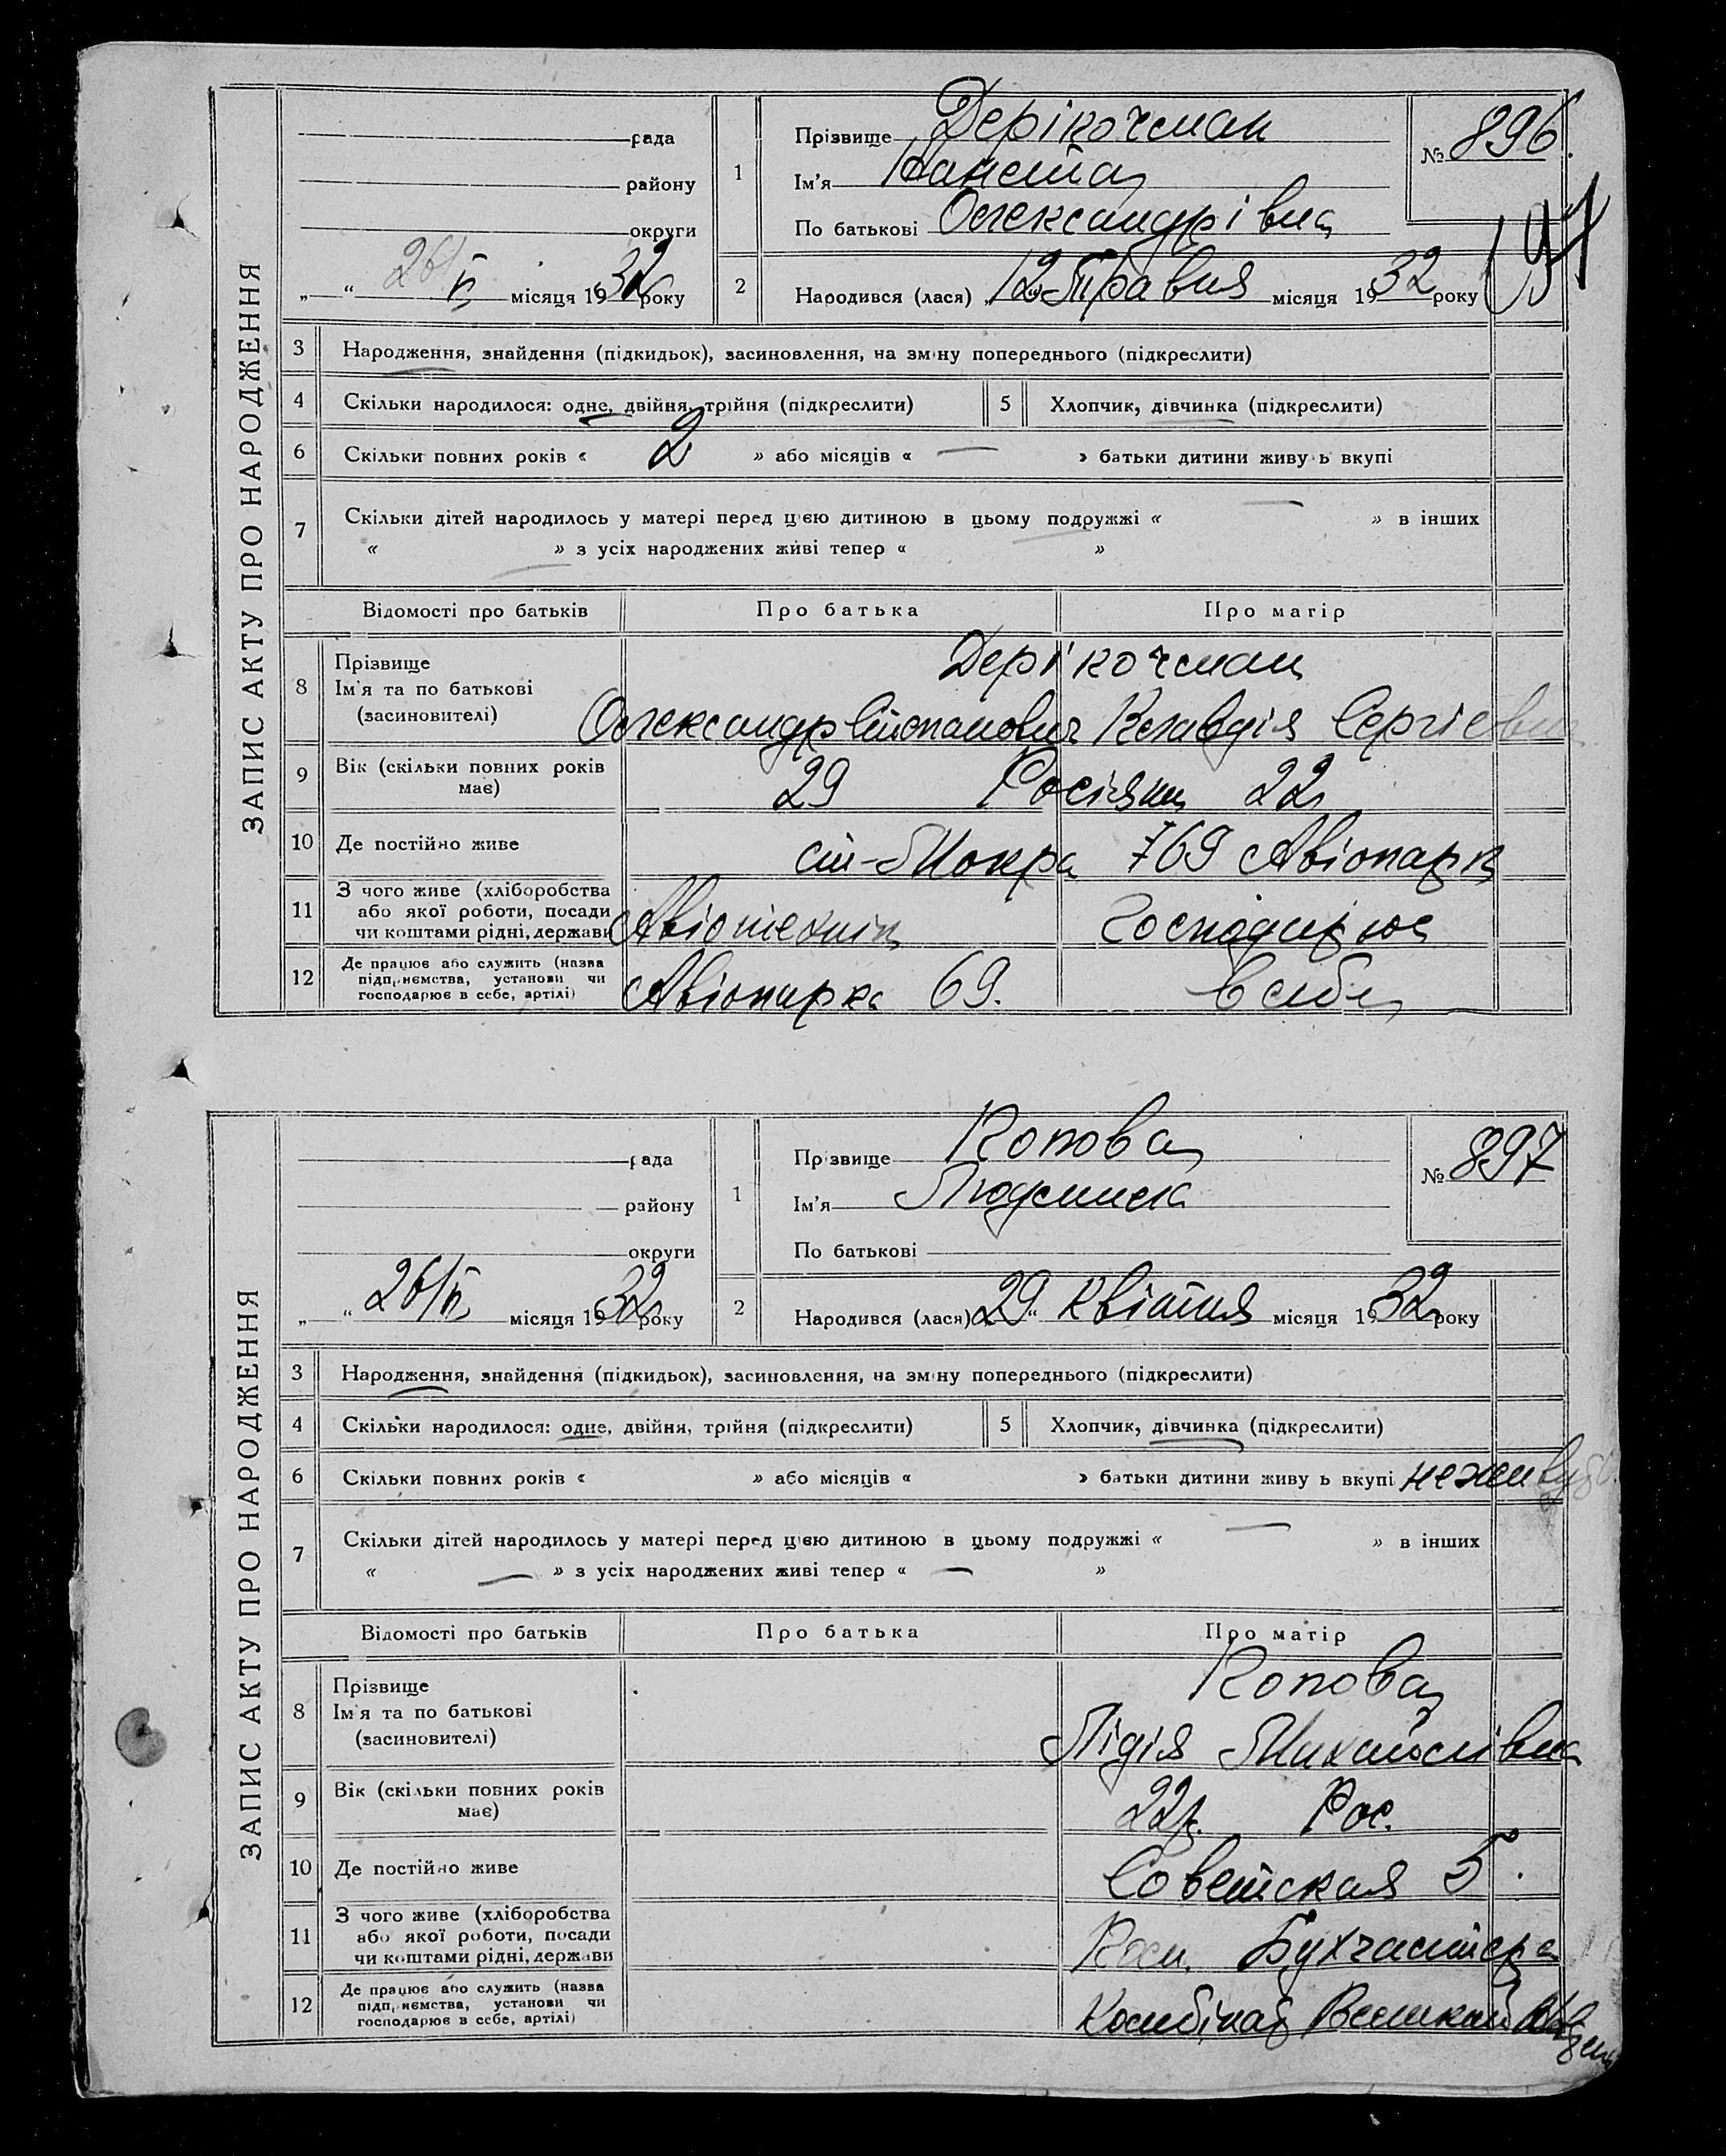 ЗАПИС АКТУ ПРО НАРОДЖЕННЯ
рада
району
округи
„ “ 26/V місяця 1932 року
1
Прізвище Дерікочмак
Ім'я
По батькові Олександрівна
№ 896.
2
Народився (лася) „12“ Травня місяця 1932 року
3 Народження, знайдення (підкидьок), засиновлення, на зміну попереднього (підкреслити)
4 Скільки народилося: одне, двійня, трійня (підкреслити) 5 Хлопчик, дівчинка (підкреслити)
6 Скільки повних років « 2 » або місяців « — » батьки дитини живуть вкупі
7 Скільки дітей народилось у матері перед цією дитиною в цьому подружжі « — » в інших
« — » з усіх народжених живі тепер « »
Відомості про батьків Про батька Про матір
8 Прізвище
Ім'я та по батькові
(засиновителі)
Дерікочмак
Олександр Степанович Клавдія Сергієвна
9 Вік (скільки повних років має) 29 Росіяни 22
10 Де постійно живе ст-Мокра 769 Авіопарк
11 З чого живе (хліборобства або якої роботи, посади чи коштами рідні, держави Авіотехнік Господарює
12 Де працює або служить (назва підприємства, установи чи господарює в себе, артілі) Авіопарка 69. В себе
ЗАПИС АКТУ ПРО НАРОДЖЕННЯ
рада
району
округи
„ “ 26/V місяця 1932 року
1
Прізвище Копова
Ім'я Людмила
По батькові
№ 897
2
Народився (лася) „29“ Квітня місяця 1932 року
3 Народження, знайдення (підкидьок), засиновлення, на зміну попереднього (підкреслити)
4 Скільки народилося: одне, двійня, трійня (підкреслити) 5 Хлопчик, дівчинка (підкреслити)
6 Скільки повних років « » або місяців « » батьки дитини живуть вкупі неживуть
7 Скільки дітей народилось у матері перед цією дитиною в цьому подружжі « — » в інших
« — » з усіх народжених живі тепер « — »
Відомості про батьків Про батька Про матір
8 Прізвище
Ім'я та по батькові
(засиновителі)
Копова
Лідія Михайлівна
9 Вік (скільки повних років має) 22р. Рос.
10 Де постійно живе Советская 5.
11 З чого живе (хліборобства або якої роботи, посади чи коштами рідні, держави Бухгалтера
12 Де працює або служить (назва підприємства, установи чи господарює в себе, артілі) Комбінат